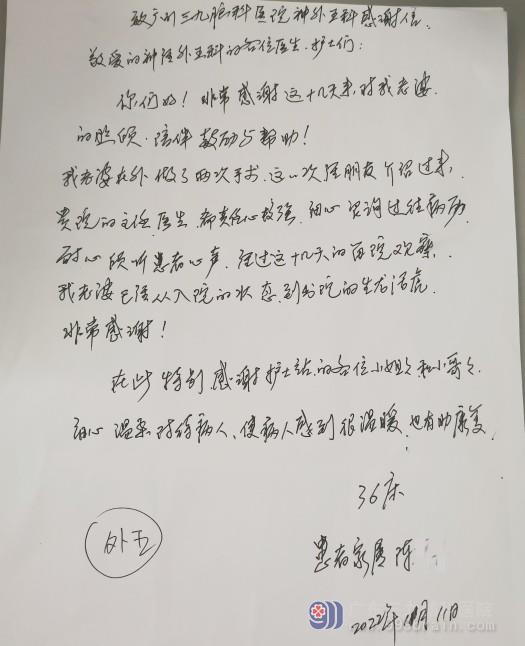 致广州三九脑科医院神外五科感谢信.
敬爱的神经外五科的各位医生.护士们:
你们好！非常感谢这十几天来,对我老婆
的照顾.陪伴 鼓励与帮助！
我老婆在外做了两次手术.这一次经朋友介绍过来,
贵院的主任医生.都责任心较强.细心咨询过往病历
耐心倾听患者心声.经过这十几天的再院观察.
我老婆已经从入院的状态.到出院的生龙活虎.
非常感谢！
在此特别感谢护士站的各位小姐々和小哥々.
细心温柔对待病人、使病人感到很温暖.也有助康复.
36床
外五
患者家属 陈
2022年 月11日